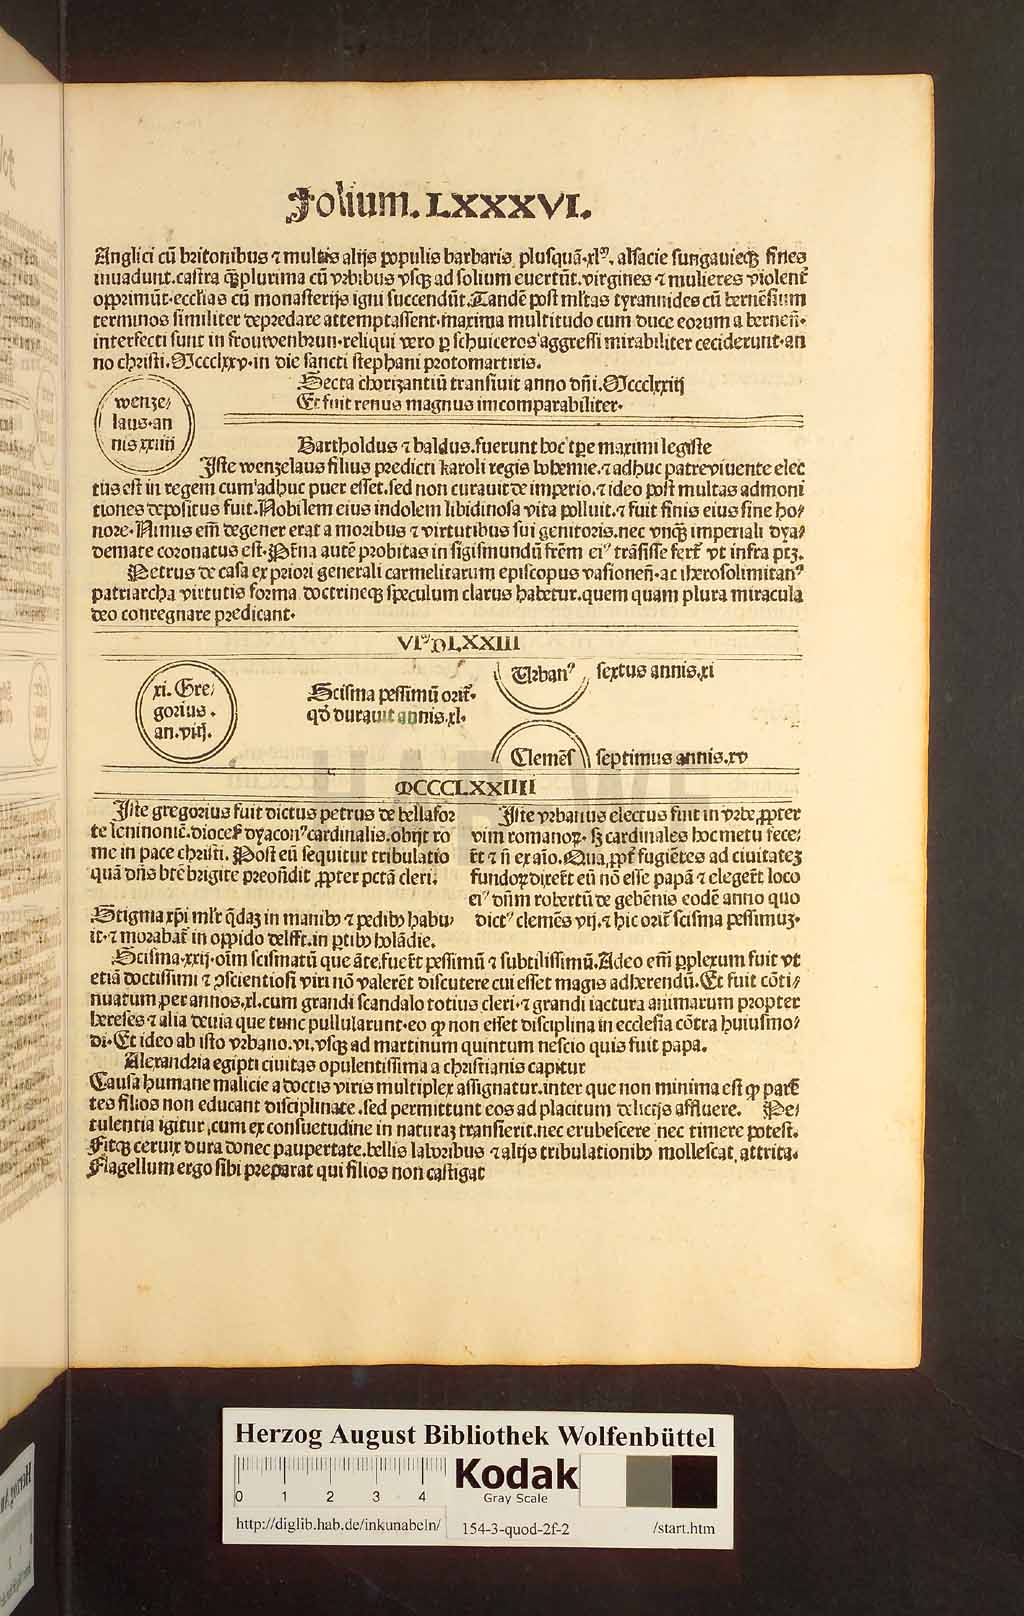 Folium. LXXXVI.
Anglici cũ britonibus ⁊ multis alijs populis barbaris plusquã.xlᵐ. alsacie sungauieqʒ fines
inuadunt.castra q̃plurima cũ vrbibus vsqʒ ad solium euertũt.virgines ⁊ mulieres violent̃
opprimũt.ecclias cũ monasterijs igni succendũt.Tandẽ post ml̃tas tyrannides cũ bernẽsium
terminos similiter depredare attemptassent.maxima multitudo cum duce eorum a berneñ.
interfecti sunt in frouwenbrun.reliqui vero ꝑ schuiceros aggressi mirabiliter ceciderunt.an
no christi.Mccclxxv.in die sancti stephani protomartiris.
Secta chorizantiũ transiuit anno dñi.Mccclxxiij
Et fuit renus magnus imcomparabiliter.
wenze/
laus.an
nis xxiiij
Bartholdus ⁊ baldus.fuerunt hoc tꝑe maximi legiste
Iste wenzelaus filius predicti karoli regis bohemie.⁊ adhuc patre viuente elec
tus est in regem cum adhuc puer esset.sed non curauit de imperio.⁊ ideo post multas admoni
tiones depositus fuit.Nobilem eius indolem libidinosa vita polluit.⁊ fuit finis eius sine ho/
nore.Nimus em̃ degener erat a moribus ⁊ virtutibus sui genitoris.nec vnqʒ imperiali dya/
demate coronatus est.Pr̃na autẽ probitas in sigismundũ fr̃em eiꝰ trãsisse fert̃ vt infra ptʒ.
Petrus de casa ex priori generali carmelitarum episcopus vasioneñ.ac iherosolimitanꝰ
patriarcha virtutis forma doctrineqʒ speculum clarus habetur.quem quam plura miracula
deo conregnare predicant.
VIᵐDLXXIII
xi. Gre/
gorius.
an.viij.
Scisma pessimũ orit̃.
qd̃ durauit annis.xl.
Urbanꝰ sextus annis.xi
Clemẽs septimus annis.xv
MCCCLXXIIII
Iste gregorius fuit dictus petrus de bellafor
te leninoniẽ.dioceß dyaconꝰ cardinalis.obijt ro
me in pace christi. Post eũ sequitur tribulatio
quã dñs btẽ brigite preoñdit ꝓpter pctã cleri.
Stigma xp̃i ml̃r q̃daʒ in manibꝰ ⁊ pedibꝰ habu/
it.⁊ morabat̃ in oppido delfft.in ꝑtibꝰ holãdie.
Iste vrbanus electus fuit in vrbe ꝓpter
vim romanoꝝ. sʒ cardinales hoc metu fece/
rt̃ ⁊ ñ ex aĩo.Qua ꝓpt̃ fugiẽtes ad ciuitateʒ
fundoꝝ dixert̃ eũ nõ esse papã ⁊ elegert̃ loco
eiꝰ dñm robertũ de gebẽnis eodẽ anno quo
dictꝰ clemẽs vij.⁊ hic orit̃ scisma pessimuʒ.
Scisma.xxij.oĩm scismatũ que ãte fuert̃ pessimũ ⁊ subtilissimũ.Adeo em̃ ꝑplexum fuit vt
etiã doctissimi ⁊ ꝯscientiosi viri nõ valerẽt discutere cui esset magis adherendũ.Et fuit cõti/
nuatum per annos.xl.cum grandi scandalo totius cleri.⁊ grandi iactura animarum propter
hereses ⁊ alia deuia que tunc pullularunt.eo ꝙ non esset disciplina in ecclesia cõtra huiusmo/
di.Et ideo ab isto vrbano.vi.vsqʒ ad martinum quintum nescio quis fuit papa.
Alexandria egipti ciuitas opulentissima a christianis capitur
Causa humane malicie a doctis viris multiplex assignatur.inter que non minima est ꝙ parẽ
tes filios non educant disciplinate.sed permittunt eos ad placitum delicijs affluere. Pe/
tulentia igitur cum ex consuetudine in naturaʒ transierit.nec erubescere nec timere potest.
Fitqʒ ceruix dura donec paupertate.bellis laboribus ⁊ alijs tribulationibꝰ mollescat attrita.
Flagellum ergo sibi preparat qui filios non castigat
HAB WF
Herzog August Bibliothek Wolfenbüttel
0 1 2 3 4
Kodak
Gray Scale
http://diglib.hab.de/inkunabeln/ 154-3-quod-2f-2 /start.htm